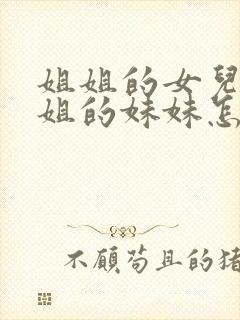 姐姐的女兒
姐的妹妹怎
不顧苟且的猪